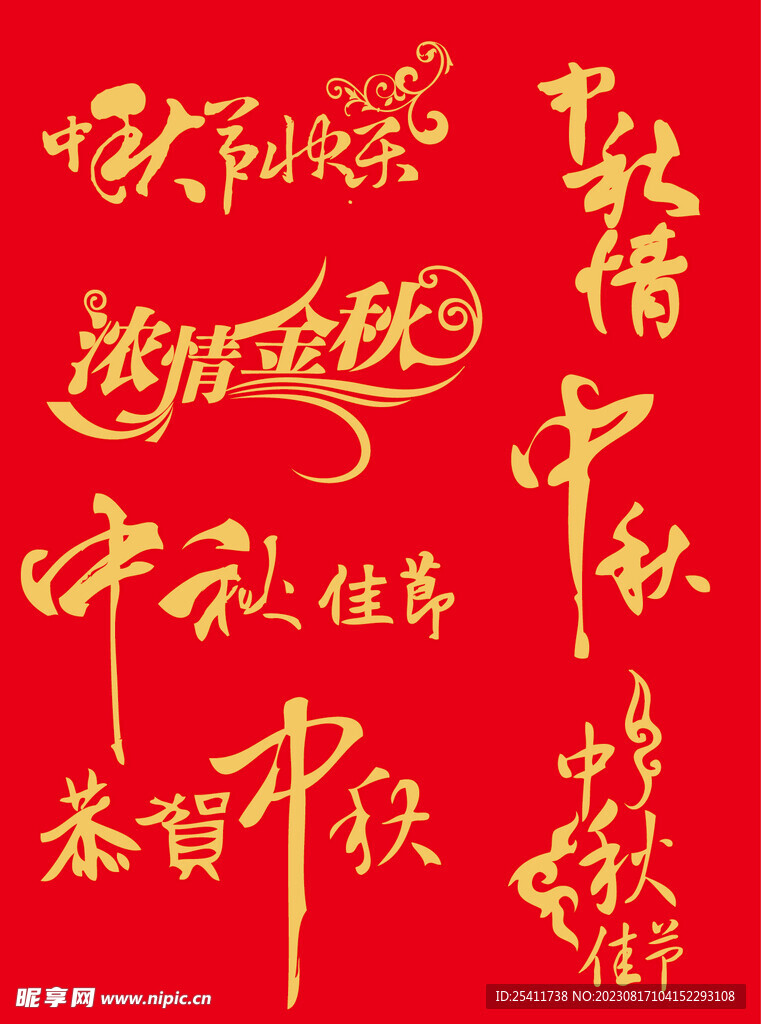 中秋节快乐
中秋情
浓情金秋
中秋
中秋佳節
恭賀中秋
中秋佳节
昵享网 www.nipic.cn
ID:25411738 NO:20230817104152293108